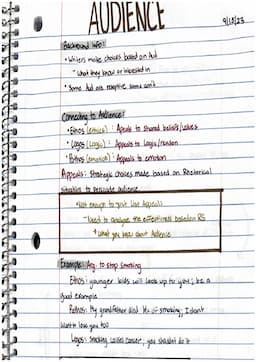 AUDIENCE
9/18/23
Background Info:
• Writers make choices based on Aud
- What they know or interested in
• Some Aud are receptive some aren't
Connecting to Audience:
• Ethos (ethics): Appeals to shared beliefs/values
• Logos (Logic): Appeals to Logic/reason
• Pathos (emotion): Appeals to emotion
Appeals: Strategic choices made based on Rhetorical
Situation to persuade audience
• Not enough to just List Appeals
- Need to analyze the effectiveness based on RS
+ what you know about Audience
Example: Arg: to stop smoking
Ethos: younger kids will look up to you; be a
good example
Pathos: My grandfather died bc of smoking; I don't
want to lose you too
Logos: Smoking causes cancer; you shouldn't do it